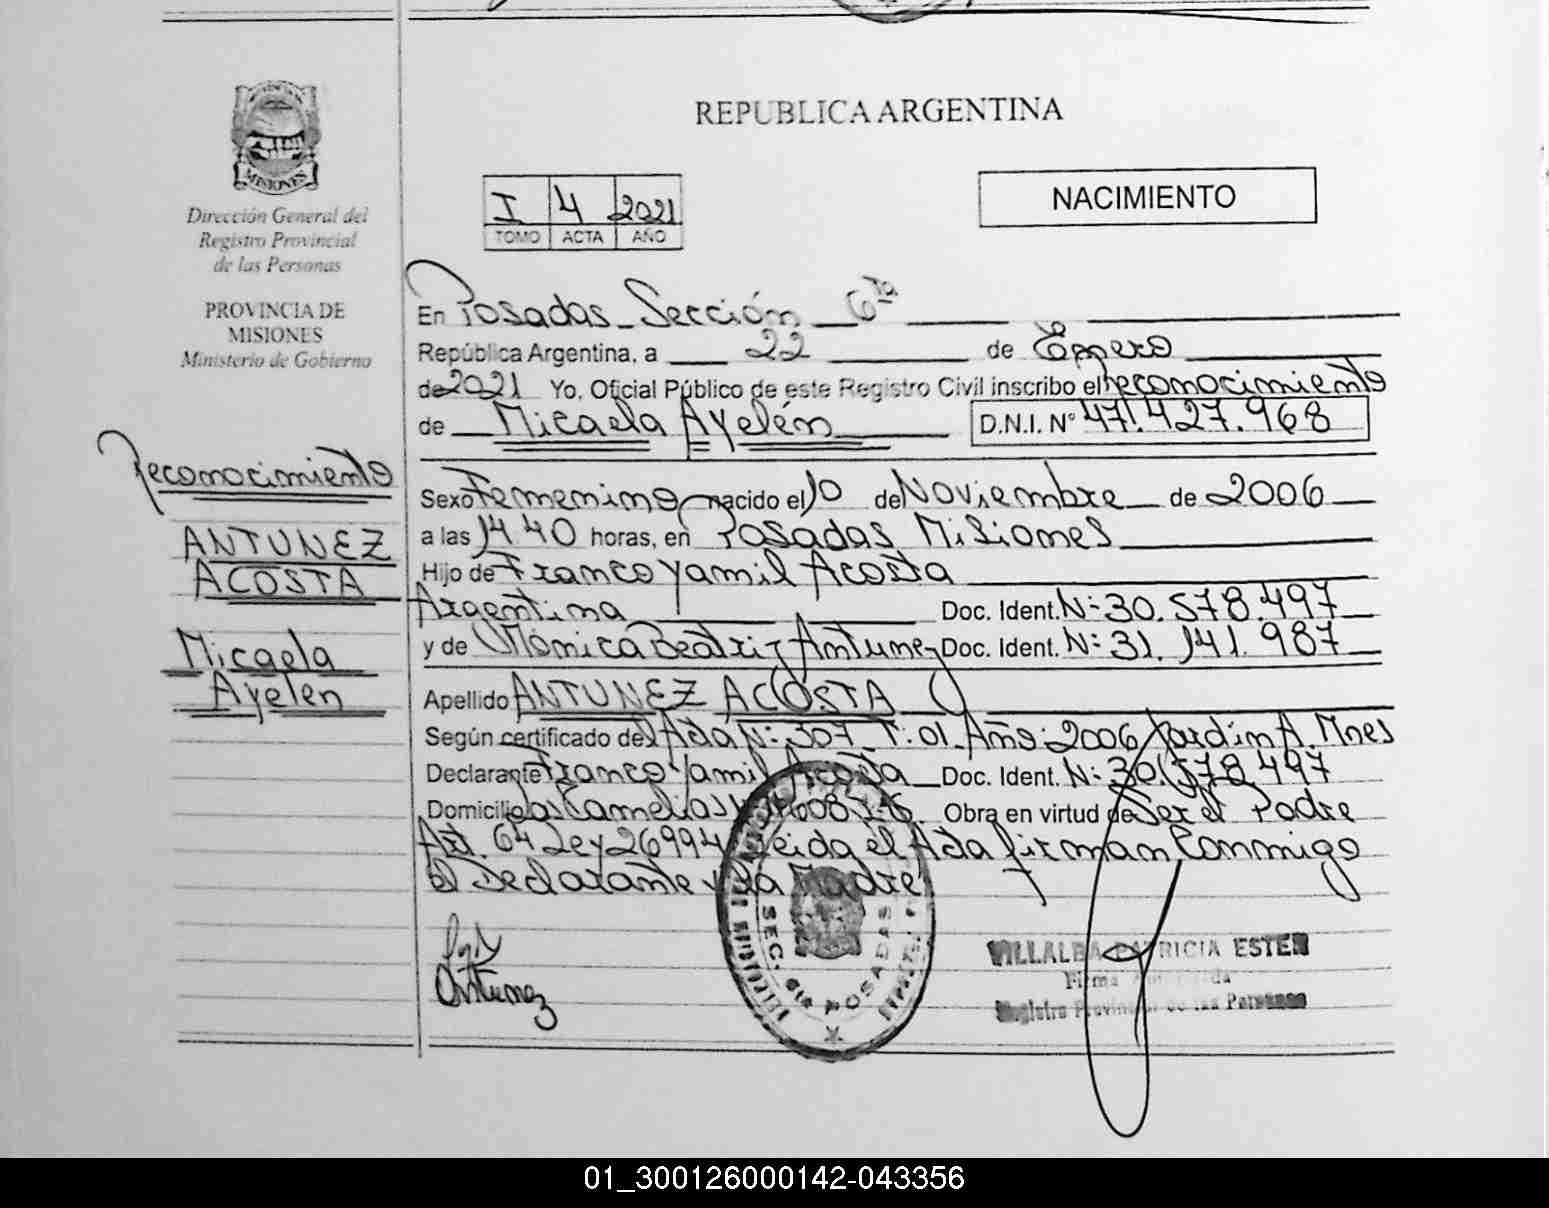 REPUBLICA ARGENTINA
MISIONES
Dirección General del
Registro Provincial
de las Personas
PROVINCIA DE
MISIONES
Ministerio de Gobierno
I 4 2021
TOMO ACTA AÑO
NACIMIENTO
En Posadas Sección 6ta
República Argentina, a 22 de Enero
de 2021 Yo, Oficial Público de este Registro Civil inscribo el reconocimiento
de Micaela Ayelén D.N.I. N° 47.427.968
Reconocimiento
ANTUNEZ
ACOSTA
Micaela
Ayelen
Sexo Femenino nacido el 10 de Noviembre de 2006
a las 14.40 horas, en Posadas Misiones
Hijo de Franco Yamil Acosta
Argentina Doc. Ident. N: 30.578.497
y de Mónica Beatriz Antunez Doc. Ident. N: 31.141.987
Apellido ANTUNEZ ACOSTA
Según certificado del Acta N: 307 T: 01 Año: 2006 Jardín A. Mnes
Declarante Franco Yamil Acosta Doc. Ident. N: 30.578.497
Domicilio Las Camelias Obra en virtud de Ser el Padre
Art. 64 Ley 26994 Leida el Acta firman Conmigo
el Declarante y la Madre
Antunez
SEC. 6ta POSADAS
VILLALBA PATRICIA ESTER
Firma Autorizada
Registro Provincial de las Personas
01_300126000142-043356